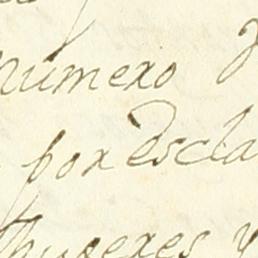 numero
por escla
mugeres y